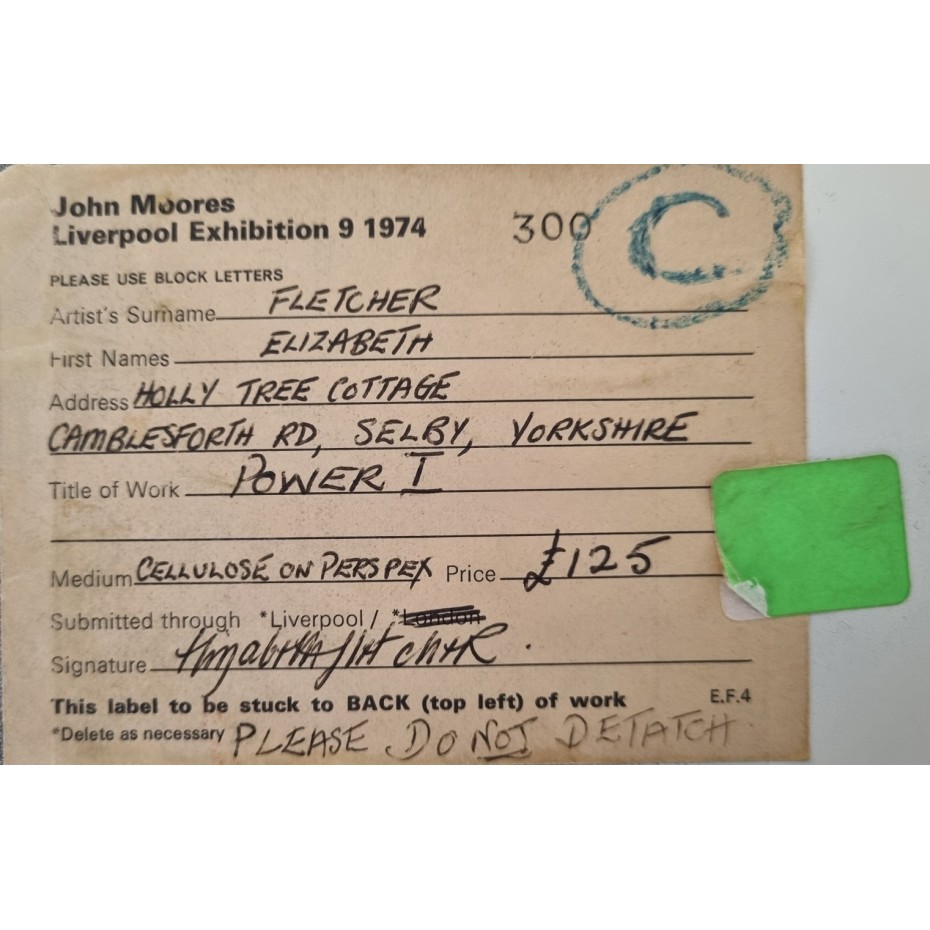 John Moores
Liverpool Exhibition 9 1974 300 C
PLEASE USE BLOCK LETTERS
Artist's Surname FLETCHER
First Names ELIZABETH
Address HOLLY TREE COTTAGE
CAMBLESFORTH RD, SELBY, YORKSHIRE
Title of Work POWER I
Medium CELLULOSE ON PERSPEX Price £125
Submitted through *Liverpool / *London
Signature Elizabeth Fletcher.
This label to be stuck to BACK (top left) of work E.F.4
*Delete as necessary PLEASE DO NOT DETATCH.